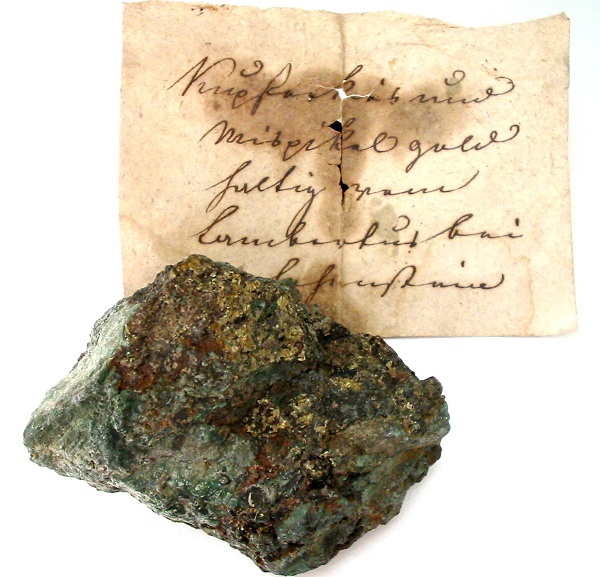 Kupferkies und
Mispikel gold
haltig vom
Lambertus bei